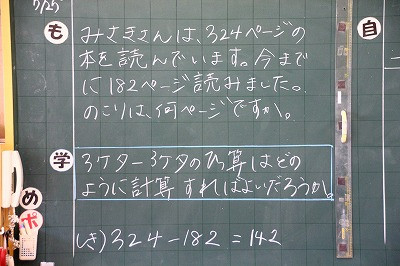 7/25
も
みさきさんは、324ページの
本を読んでいます。今まで
に182ページ読みました。
のこりは、何ページですか。
自
学
3ケター3ケタのひっ算はどの
ように計算すればよいだろうか。
め
ポ
(しき)324-182=142